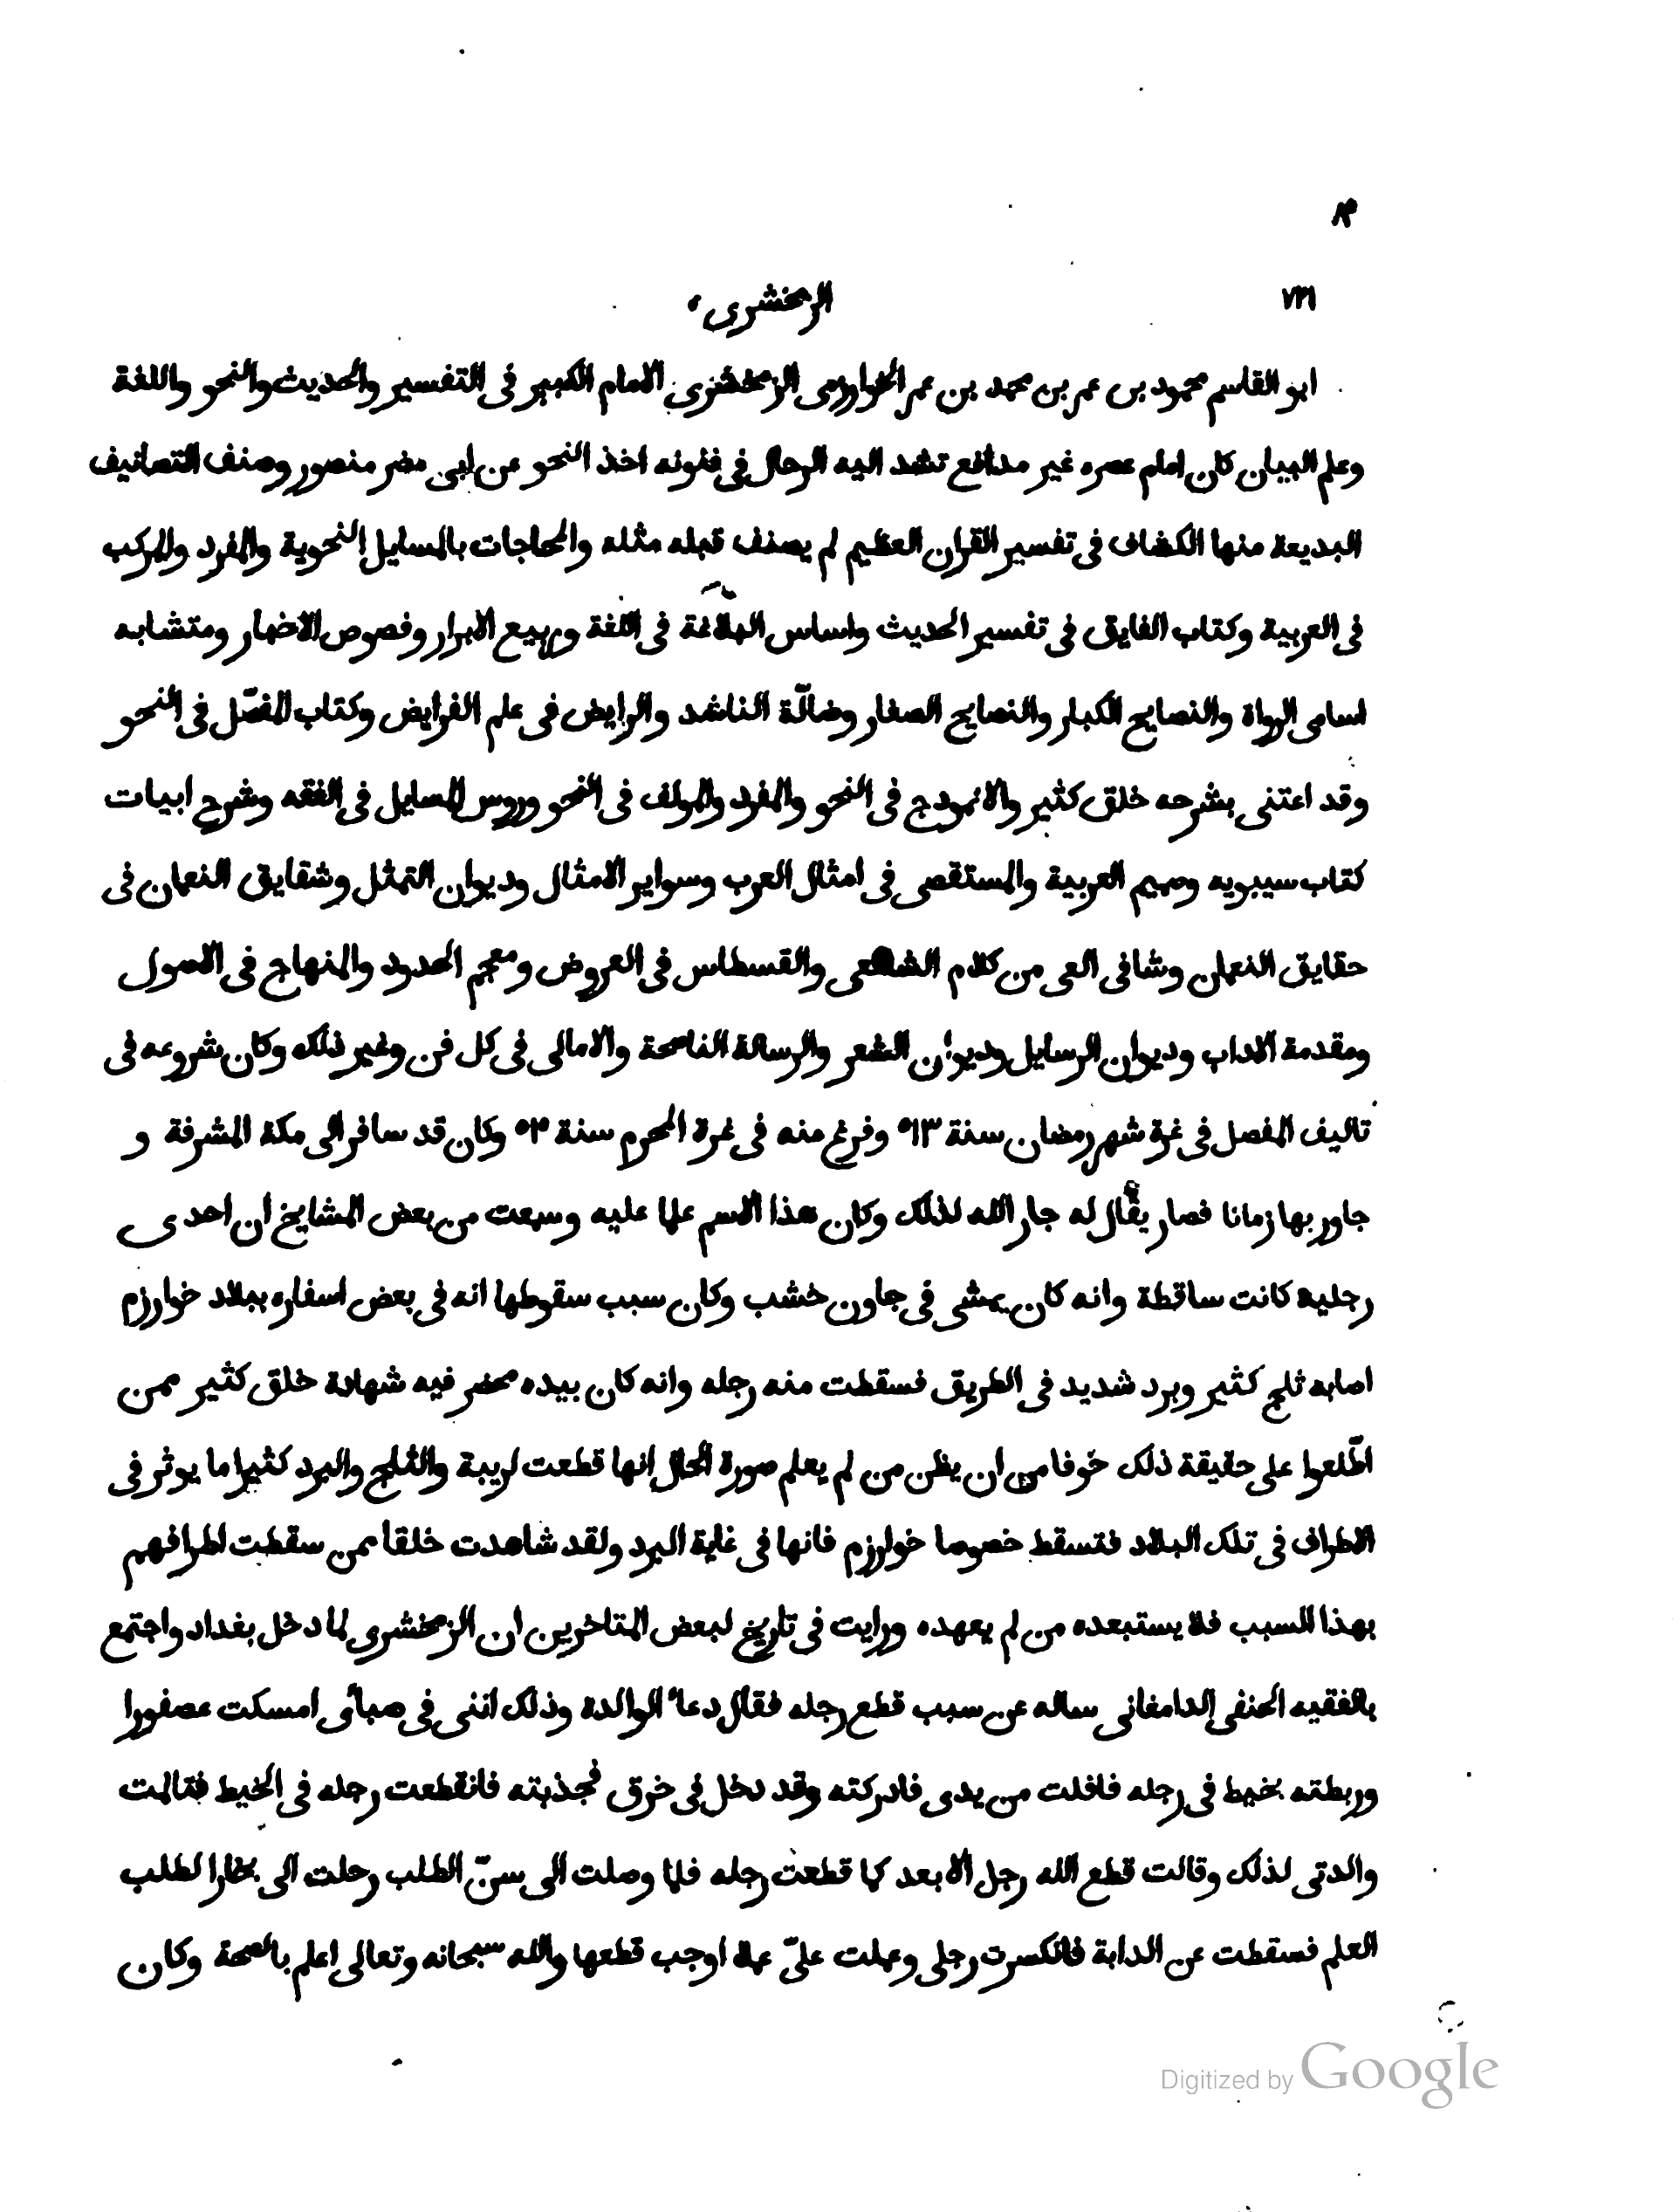 ٧٢١
الزمخشرى
ابو القاسم محمود بن عمر بن محمد بن عمر الخوارزمى الزمخشرى الامام الكبير فى التفسير والحديث والنحو واللغة
وعلم البيان كان امام عصره غير مدافع تشد اليه الرحال فى فنونه اخذ النحو عن ابى مضر منصور وصنف التصانيف
البديعة منها الكشاف فى تفسير القران العظيم لم يصنف قبله مثله والمحاجات بالمسايل النحوية والمفرد والمركب
فى العربية وكتاب الفايق فى تفسير الحديث واساس البلاغة فى اللغة وربيع الابرار وفصوص الاخبار ومتشابه
اسامى الرواة والنصايح الكبار والنصايح الصغار وضالّة الناشد والرايض فى علم الفرايض وكتاب المفصّل فى النحو
وقد اعتنى بشرحه خلق كثير والانموذج فى النحو والمفرد والمولف فى النحو وروس المسايل فى الفقه وشرح ابيات
كتاب سيبويه وصميم العربية والمستقصى فى امثال العرب وسواير الامثال وديوان التمثل وشقايق النعمان فى
حقايق النعمان وشافى العى من كلام الشافعى والقسطاس فى العروض ومعجم الحدود والمنهاج فى الاصول
ومقدمة الاداب وديوان الرسايل وديوان الشعر والرسالة الناصحة والامالى فى كل فن وغير ذلك وكان شروعه فى
تاليف المفصل فى غرة شهر رمضان سنة ٥١٣ وفرغ منه فى غرة المحرم سنة وكان قد سافر الى مكة المشرفة و
جاور بها زمانا فصار يقال له جار الله لذلك وكان هذا الاسم علما عليه وسمعت من بعض المشايخ ان احدى
رجليه كانت ساقطة وانه كان يمشى فى جاون خشب وكان سبب سقوطها انه فى بعض اسفاره ببلاد خوارزم
اصابه ثلج كثير وبرد شديد فى الطريق فسقطت منه رجله وانه كان بيده محضر فيه شهادة خلق كثير ممن
اطّلعوا على حقيقة ذلك خوفا من ان يظن من لم يعلم صورة الحال انها قطعت لريبة والثلج والبرد كثيرا ما يوثر فى
الاطراف فى تلك البلاد فتسقط خصوصا خوارزم فانها فى غاية البرد ولقد شاهدت خلقا ممن سقطت اطرافهم
بهذا السبب فلا يستبعده من لم يعهده ورايت فى تاريخ لبعض المتاخرين ان الزمخشرى لما دخل بغداد واجتمع
بالفقيه الحنفى الدامغانى ساله عن سبب قطع رجله فقال دعاء الوالدة وذلك اننى فى صبأى امسكت عصفورا
وربطته بخيط فى رجله فافلت من يدى فادركته وقد دخل فى خرق فجذبته فانقطعت رجله فى الخيط فتالمت
والدتى لذلك وقالت قطع الله رجل الابعد كما قطعت رجله فلما وصلت الى سنّ الطلب رحلت الى بخارا لطلب
العلم فسقطت عن الدابة فانكسرت رجلى وعملت علىّ عملا اوجب قطعها والله سبحانه وتعالى اعلم بالصحة وكان
Digitized by Google